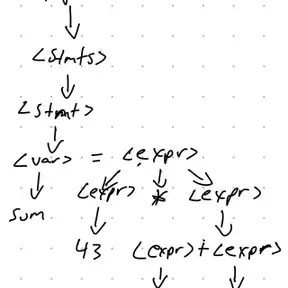 <stmts>
<stmt>
<var> = <expr>
<expr> * <expr>
sum
43 <expr> + <expr>